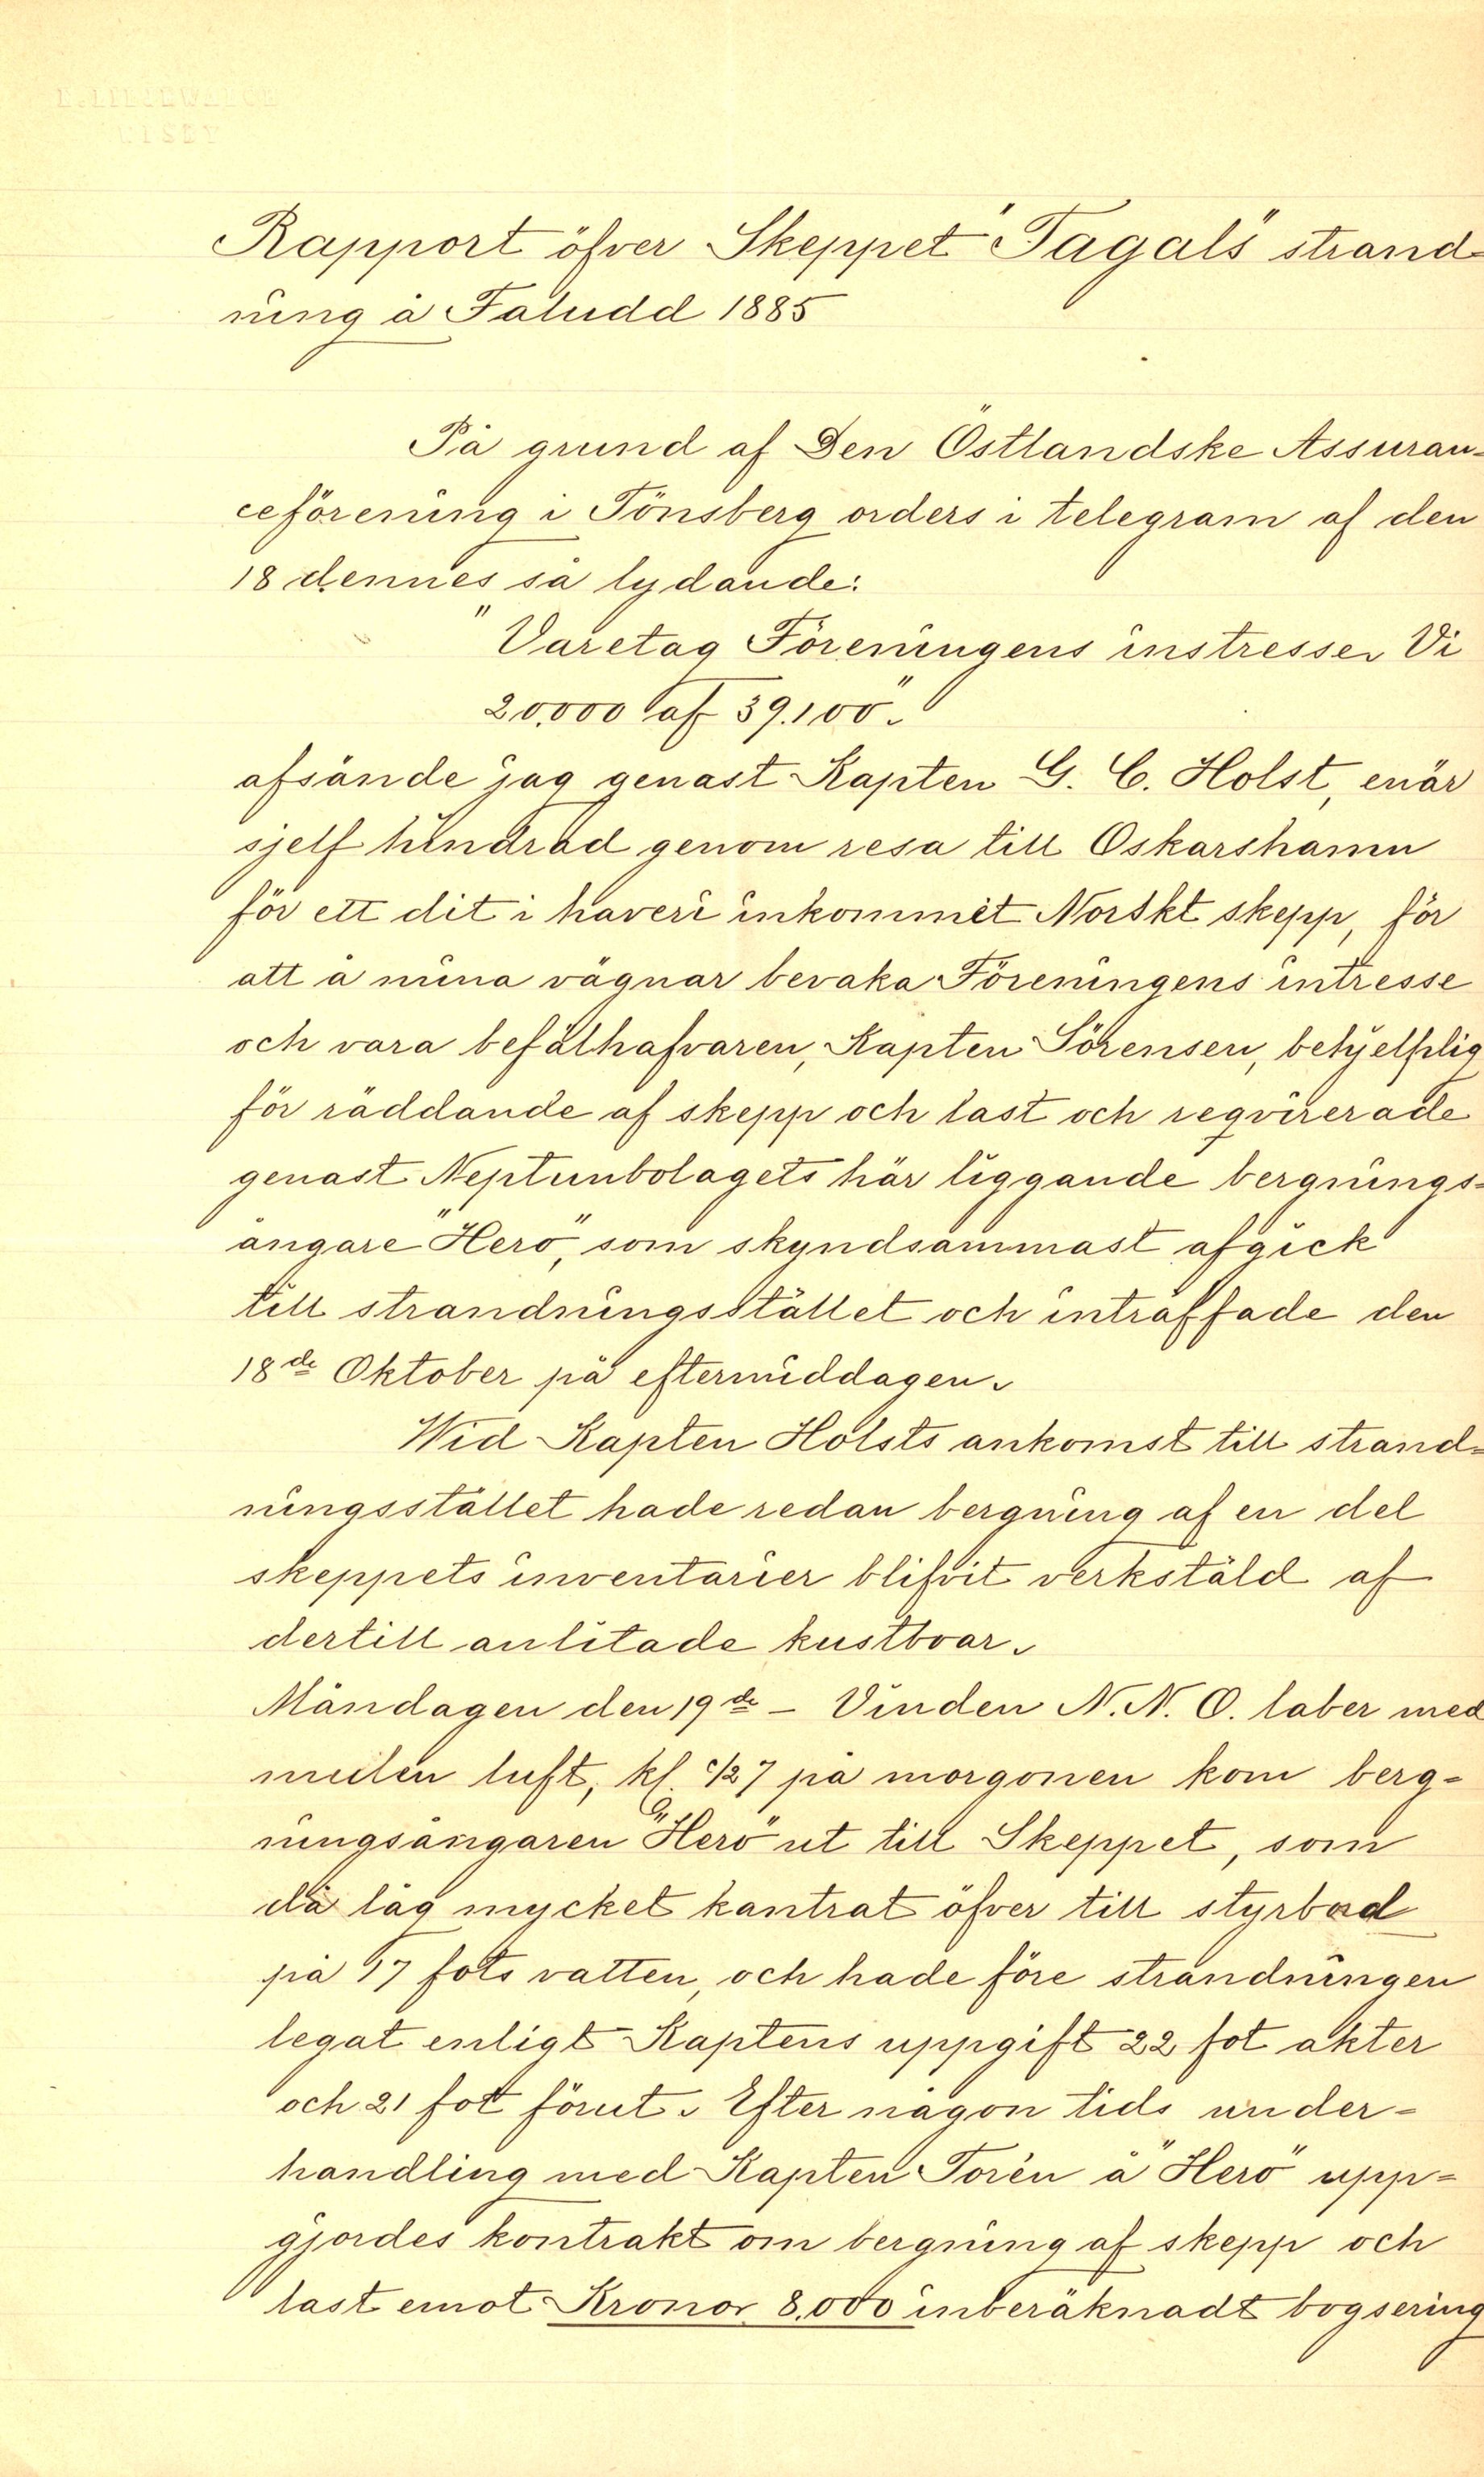 Rapport öfver Skeppet "Tagals" strand=
ning å Faludd 1885
På grund af Den Östlandske Assuran=
ceförening i Tönsberg orders i telegram af den
18 dennes så lydande:
"Varetag Föreningens instresser Vi
20.000 af 39.100".
afsände jag genast Kapten G. C. Holst, enär
sjelf hindrad genom resa till Oskarshamn
för ett dit i haveri inkommet Norskt skepp, för
att å mina vägnar bevaka Föreningens intresse
och vara befälhafvaren, Kapten Sörensen, behjelplig
för räddande af skepp och last och reqvirerade
genast Neptunbolagets här liggande bergnings=
ångare "Hero", som skyndsammast afgick
till strandningsstället och inträffade den
18de Oktober på eftermiddagen.
Wid Kapten Holsts ankomst till strand=
ningsstället hade redan bergning af en del
skeppets inventarier blifvit verkstäld af
dertill anlitade kustboar.
Måndagen den 19de – Vinden N. N. O. laber med
mulen luft, kl. 1/2 7 på morgonen kom berg=
ningsångaren "Hero" ut till Skeppet, som
då låg mycket kantrat öfver till styrbord
på 17 fots vatten, och hade före strandningen
legat enligt Kaptens uppgift 22 fot akter
och 21 fot förut. Efter någon tids under=
handling med Kapten Torén å "Hero" upp=
gjordes kontrakt om bergning af skepp och
last emot Kronor 8.000 inberäknadt bogsering